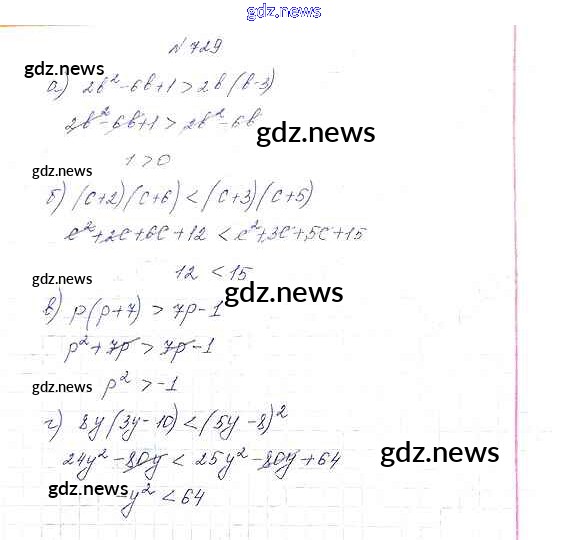 gdz.news
№ 729
gdz.news
а) 2b² - 6b + 1 > 2b (b - 3)
2b² - 6b + 1 > 2b² - 6b
gdz.news
1 > 0
gdz.news
б) (c+2)(c+6) < (c+3)(c+5)
c² + 2c + 6c + 12 < c² + 3c + 5c + 15
gdz.news
12 < 15
gdz.news
в) p(p+7) > 7p - 1
p² + 7p > 7p - 1
gdz.news
p² > -1
г) 8y(3y - 10) < (5y - 8)²
24y² - 80y < 25y² - 80y + 64
gdz.news
gdz.news
-y² < 64